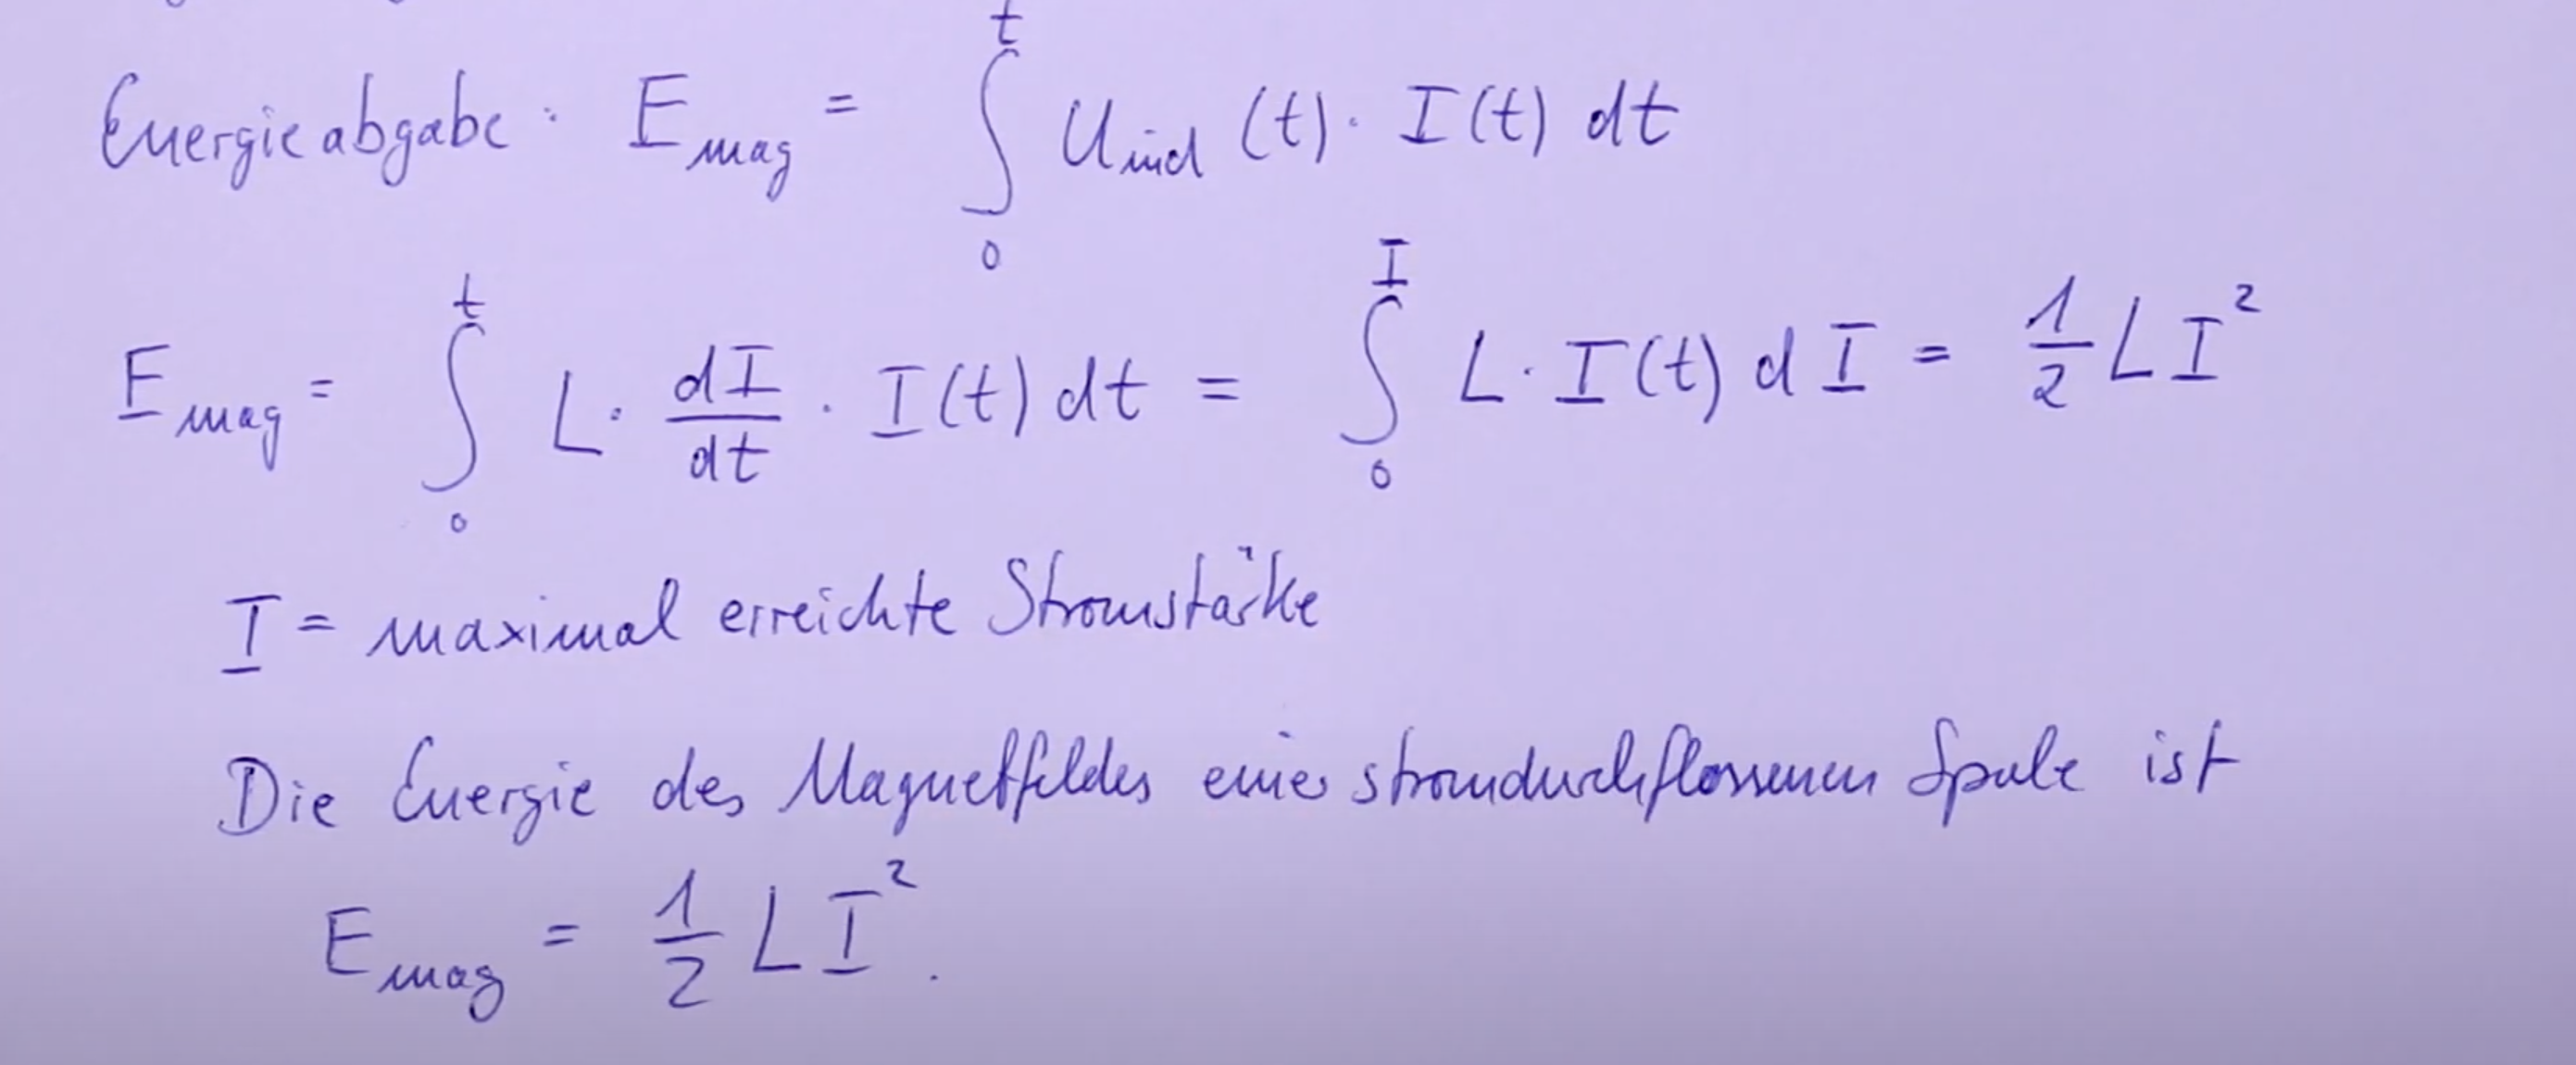 Energieabgabe: E_mag = ∫₀ᵗ U_ind (t) · I(t) dt
E_mag = ∫₀ᵗ L · dI/dt · I(t) dt = ∫₀ᴵ L · I(t) dI = 1/2 L I²
I = maximal erreichte Stromstärke
Die Energie des Magnetfeldes einer stromdurchflossenen Spule ist
E_mag = 1/2 L I².